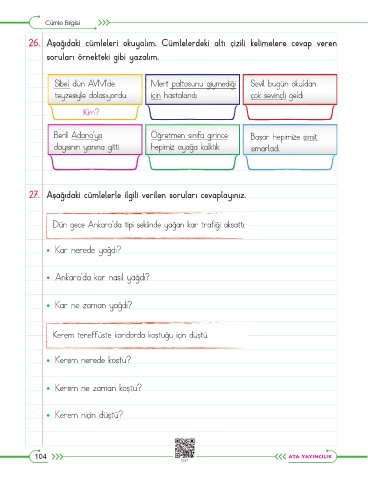 Cümle Bilgisi
26. Aşağıdaki cümleleri okuyalım. Cümlelerdeki altı çizili kelimelere cevap veren
soruları örnekteki gibi yazalım.
Sibel dün AVM'de
teyzesiyle dolaşıyordu.
Kim?
Mert paltosunu giymediği
için hastalandı.
Sevil bugün okuldan
çok sevinçli geldi.
Beril Adana'ya
dayısının yanına gitti.
Öğretmen sınıfa girince
hepimiz ayağa kalktık.
Başar hepimize simit
ısmarladı.
27. Aşağıdaki cümlelerle ilgili verilen soruları cevaplayınız.
Dün gece Ankara'da tipi şeklinde yağan kar trafiği aksattı.
• Kar nerede yağdı?
• Ankara'da kar nasıl yağdı?
• Kar ne zaman yağdı?
Kerem teneffüste koridorda koştuğu için düştü.
• Kerem nerede koştu?
• Kerem ne zaman koştu?
• Kerem niçin düştü?
104
ATA YAYINCILIK